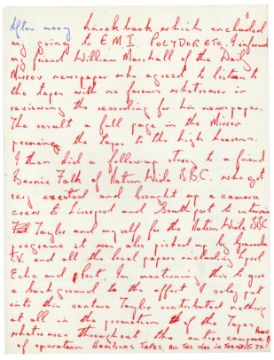 After many knock backs which included
my going to E.M.I. POLYDOR ETC. I informed
my friend William Marshall of the Daily
Mirror newspaper who agreed to listen to
the tapes with no favours whatsoever in
reviewing the recording for his newspaper.
The result a full page in the Mirror
promoting the tapes to the high heavens.
I then did a following story to a friend
Bernie Falk of Nation Wide BBC. who got
very excited and brought up a camera
crew to Liverpool and Southport to interview
Taylor and myself for the Nation Wide BBC
programme it was also picked up by Granada
T.V. and all the local papers including L'pool
Echo and Post. In mentioning this to give
a background to the effort I solely put
into this venture Taylor contributed nothing
at all in the promotion of the Tapes
whatsoever throughout the entire
of operation Hamburg Tapes.